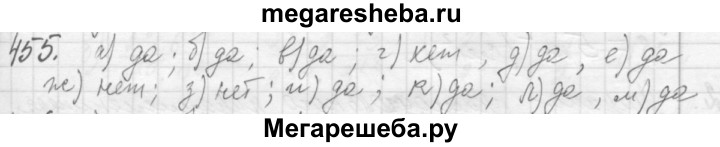 megaresheba.ru
455. а) да; б) да; в) да; г) нет, д) да, е) да
ж) нет; з) нет; и) да; к) да; л) да, м) да
Мегарешеба.ру